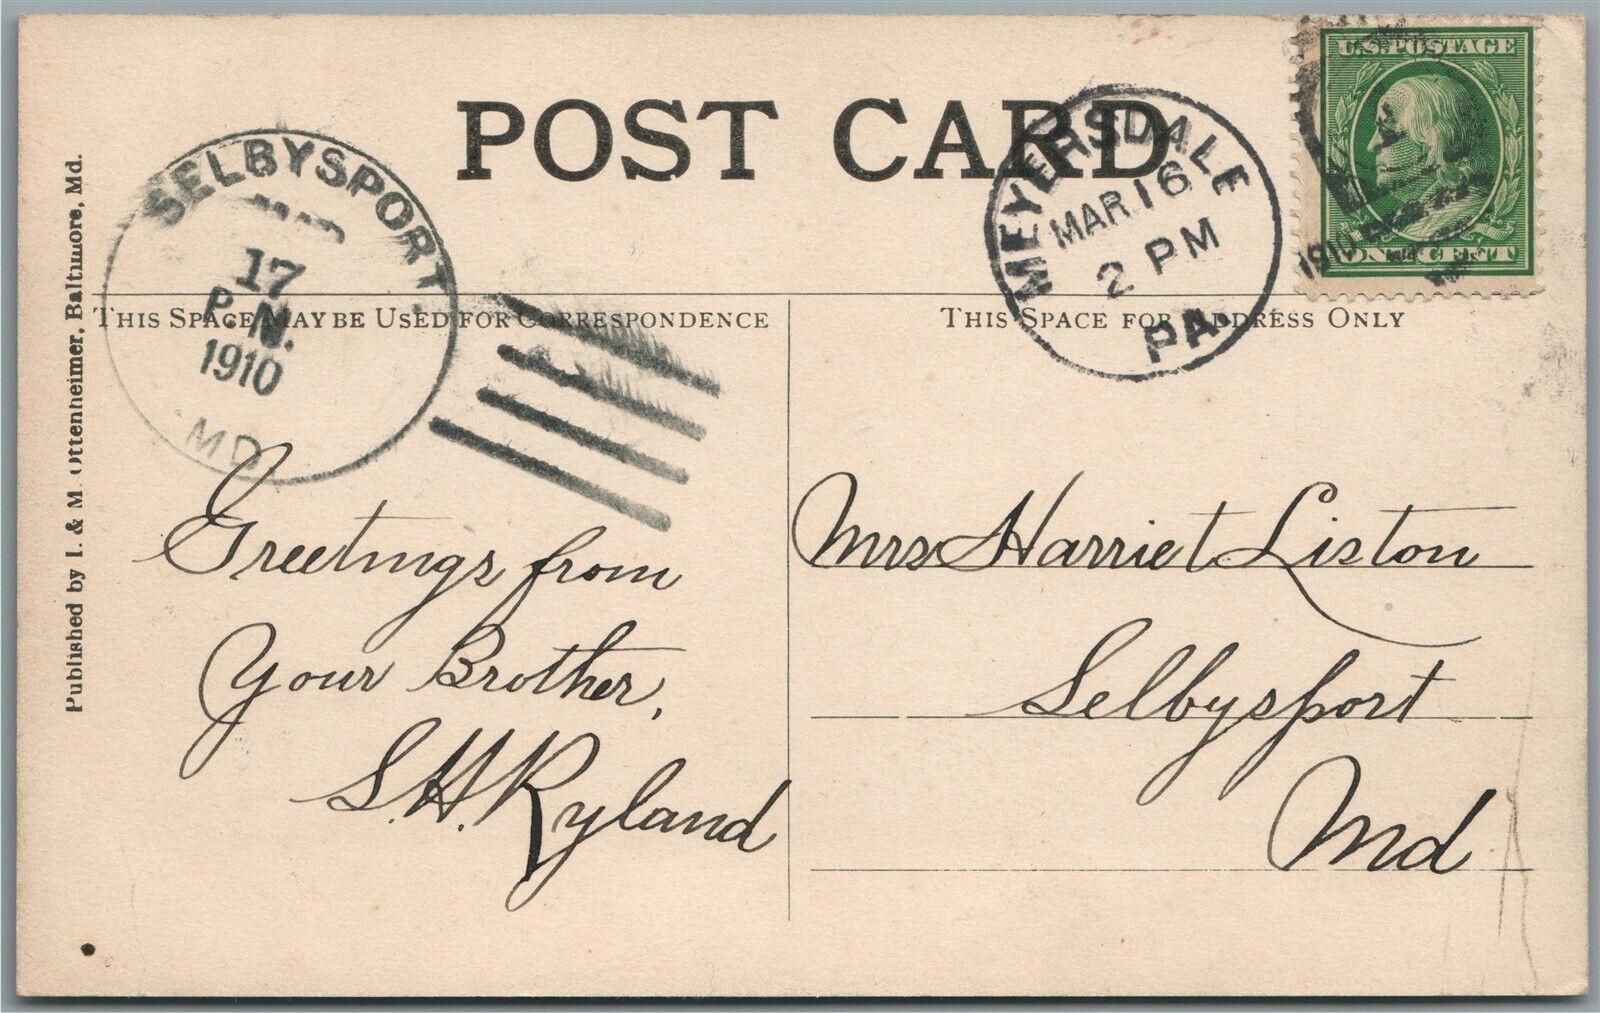 POST CARD
U.S. POSTAGE
ONE CENT
MEYERSDALE
MAR 16
2 PM
PA.
1910
SELBYSPORT
17
P.M.
1910
MD.
THIS SPACE MAY BE USED FOR CORRESPONDENCE
THIS SPACE FOR ADDRESS ONLY
Published by I. & M. Ottenheimer, Baltimore, Md.
Greetings from
your Brother,
S.H. Ryland
Mrs Harriet Liston
Selbysport
Md